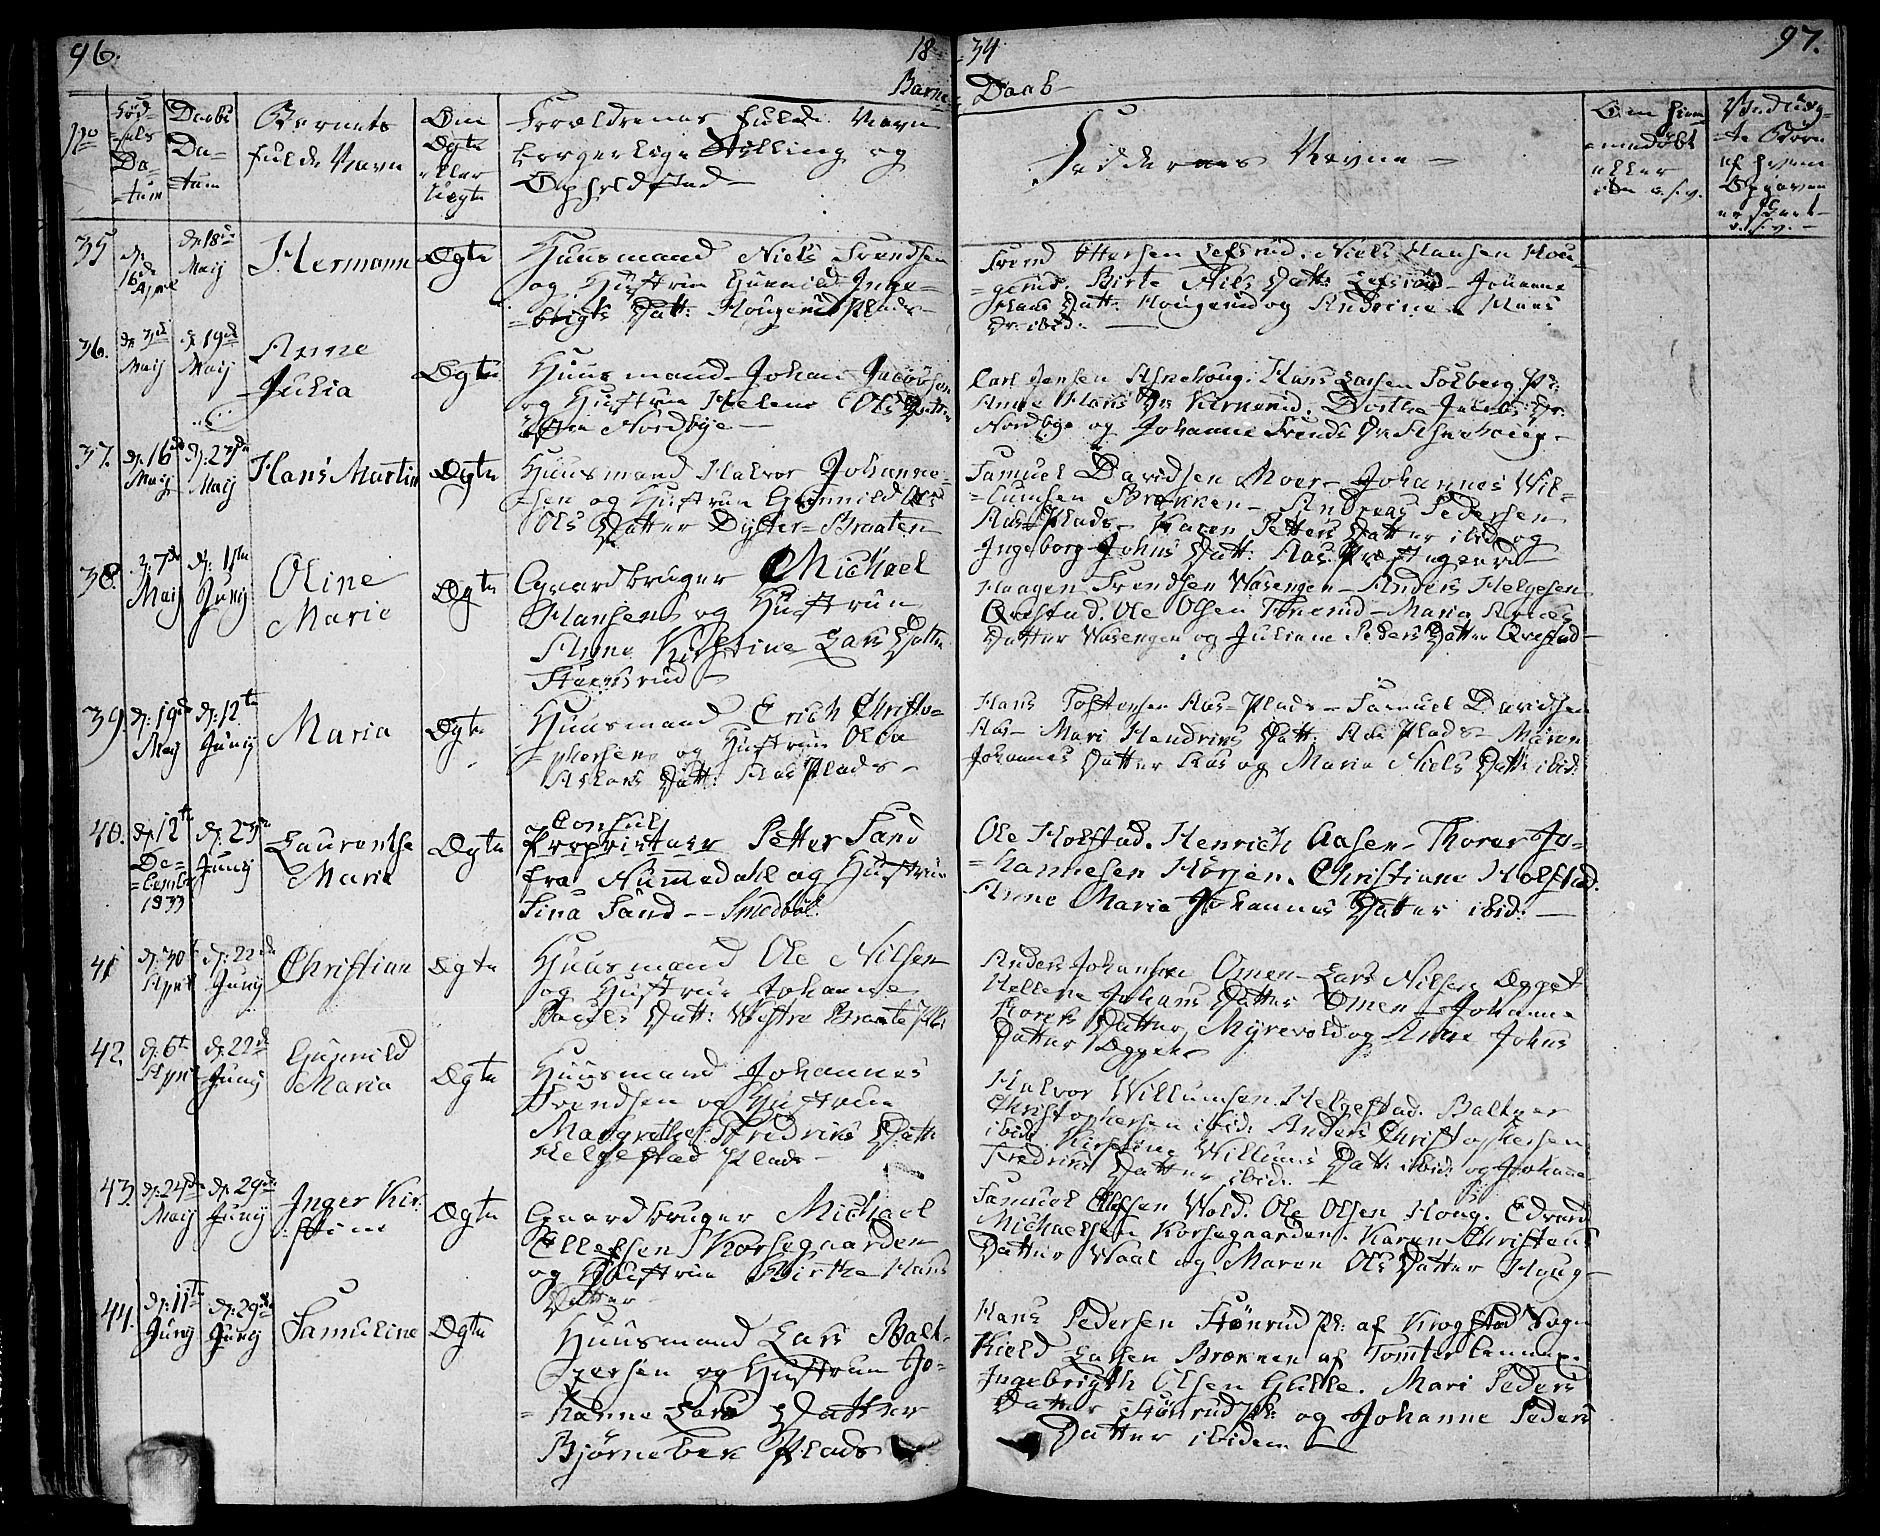 96.
18
34
97.
Barne
Daab
No
Fød-
sels
Da-
tum
Daabs
Da-
tum
Barnets
fulde Navn
Om
Ægte
eller
Uægte
Forældrenes fulde Navn
borgerlige Stilling og
Opholdsted
Faddernes Navne
Om hiem-
medøbt
eller
35
d:
16de
April
d: 18de
Maij
Hermann
Ægte
Huusmand Niels Svendsen
og Hustrue Gunild Inge-
brigts Datt: Hougerud Plads
Svend Ottersen Lefsrud. Niels Hansen Hou-
gerud. Birte Niels Datt: Lefsrud Johanne
Hans Datt: Hougerud og Andrine Hans
Dr ibid.
36.
d: 3de
Maij
d: 19de
Maij
Anne
Julia
Ægte
Huusmand Johan Jacobsen
og Hustrue Helene Ols Datter
Nordbye
Carl Jensen Asnehoug. Hans Larsen Solberg. Pl:
Anne Hans Dr Kirkerud. Dorthe Jacobs Dr
Nordbye og Johanne Svends Dr Asnehoug
37.
d: 16de
Maij
d: 23de
Maij
Hans Martin
Ægte
Huusmand Halvor Johanne-
sen og Hustrue Gunnild Ols
Ols Datter Dyster-Braaten
Samuel Davidsen Moer Johannes Wil-
lumsen Brekken Andreas Pedersen
Aas Plads Karen Petters Datter ibid og
Ingeborg Johns Datt: Aas Præstegaard
38.
d: 7de
Maij
d: 1ste
Junij
Oline
Marie
Ægte
Gaardbruger Michael
Hansen og Hustrue
Anne Kirstine Lars Datter
Haagen Svendsen Vasengen Anders Helgesen
Qvestad. Ole Olsen Maria
Datter Vasengen og Juliane Peders Datter Qvestad
39.
d: 19de
Maij
d: 12te
Junij
Maria
Ægte
Huusmand Erich Christo-
phersen og Hustrue Olea
Aslaks Datt: Aas Plads
Hans Tostensen Aas Plads Samuel Davidsen
Aas Mari Hendriks Datt: Aas Plads Maren
Johannes Datter Aas og Maria Niels Datt: ibid:
40.
d: 12te
De-
cember
1833
d: 23de
Junij
Laurentse
Marie
Ægte
Consul
Proprietair Petter Sand
fra Nummedahl og Hustrue
Sina Sand Smedbøl
Ole Holstad. Henrich Aasen Thorer Jo-
hannesen Horjen. Christiane Holstad.
Anne Marie Johannes Datter ibid:
41
d: 30
April
d: 22de
Junij
Christian
Ægte
Huusmand Ole Nilsen
og Hustrue Johanne
Pouls Datt: Westre Braate Pl:
Anders Johansen Omen Lars Nilsen Ægget
Hellene Johans Datter Omen Johanne
Datter Myrevold og Anne Johns
Datter Ægget
42.
d: 6te
April
d: 22de
Junij
Gunnild
Maria
Ægte
Huusmand Johannes
Svendsen og Hustrue
Margrethe Fredriks Datt:
Helgestad Plads
Halvor Willumsen Helgestad. Baltzer
Christophersen ibid: Anders Christophersen
ibid. Kirstine Willums Datt: ibid: og Johanne
Fredriks Datter ibid:
43.
d: 24de
Maij
d: 29de
Junij
Inger Kir-
stine
Ægte
Gaardbruger Michael
Ellefsen Korsegaarden
og Hustrue Birthe Hans
Datter
Samuel Ellefsen Wold. Ole Olsen Houg. Edvard
Michaelsen Korsegaarden. Karen Christens
Datter Waal og Maren Ols Datter Houg
44.
d: 11te
Junij
d: 29de
Junij
Samueline
Ægte
Huusmand Lars Balt-
zersen og Hustrue Jo-
hanne Lars Datter
Bjørnebek Plads
Hans Pedersen Stønrud Pl: af Krogstad Sogn
Kield Larsen Brekken af Tomter
Ingebrigth Olsen Glille. Mari Peders
Datter Stønrud Pl: og Johanne Peders
Datter ibidem